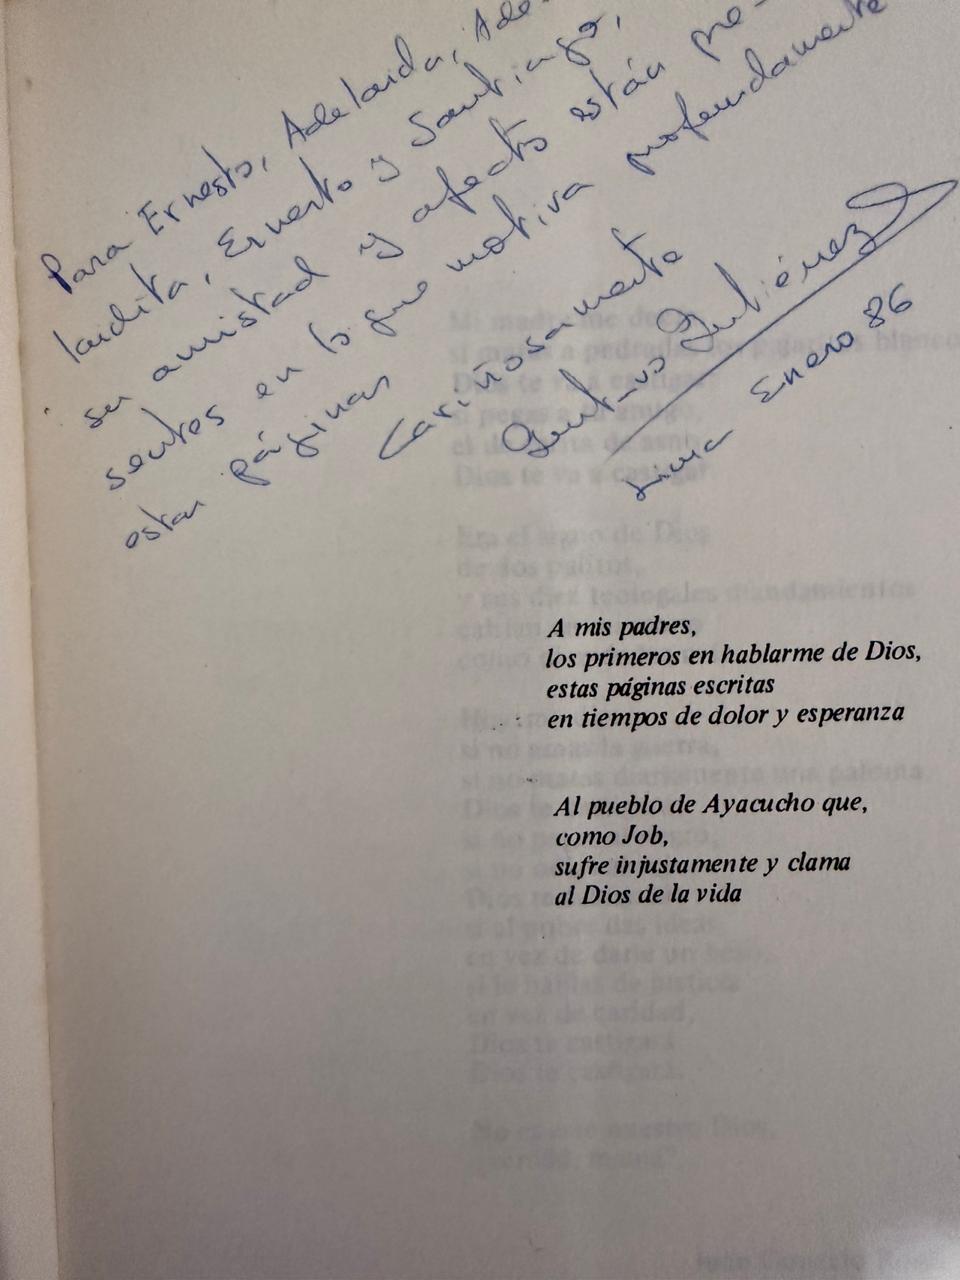 Para Ernesto, Adelaida, Ade-
laidita, Ernesto y Santiago,
su amistad y afecto están pre-
sentes en lo que motiva profundamente
estas páginas
Cariñosamente
Gustavo Gutiérrez
Lima Enero 86
A mis padres,
los primeros en hablarme de Dios,
estas páginas escritas
en tiempos de dolor y esperanza
Al pueblo de Ayacucho que,
como Job,
sufre injustamente y clama
al Dios de la vida